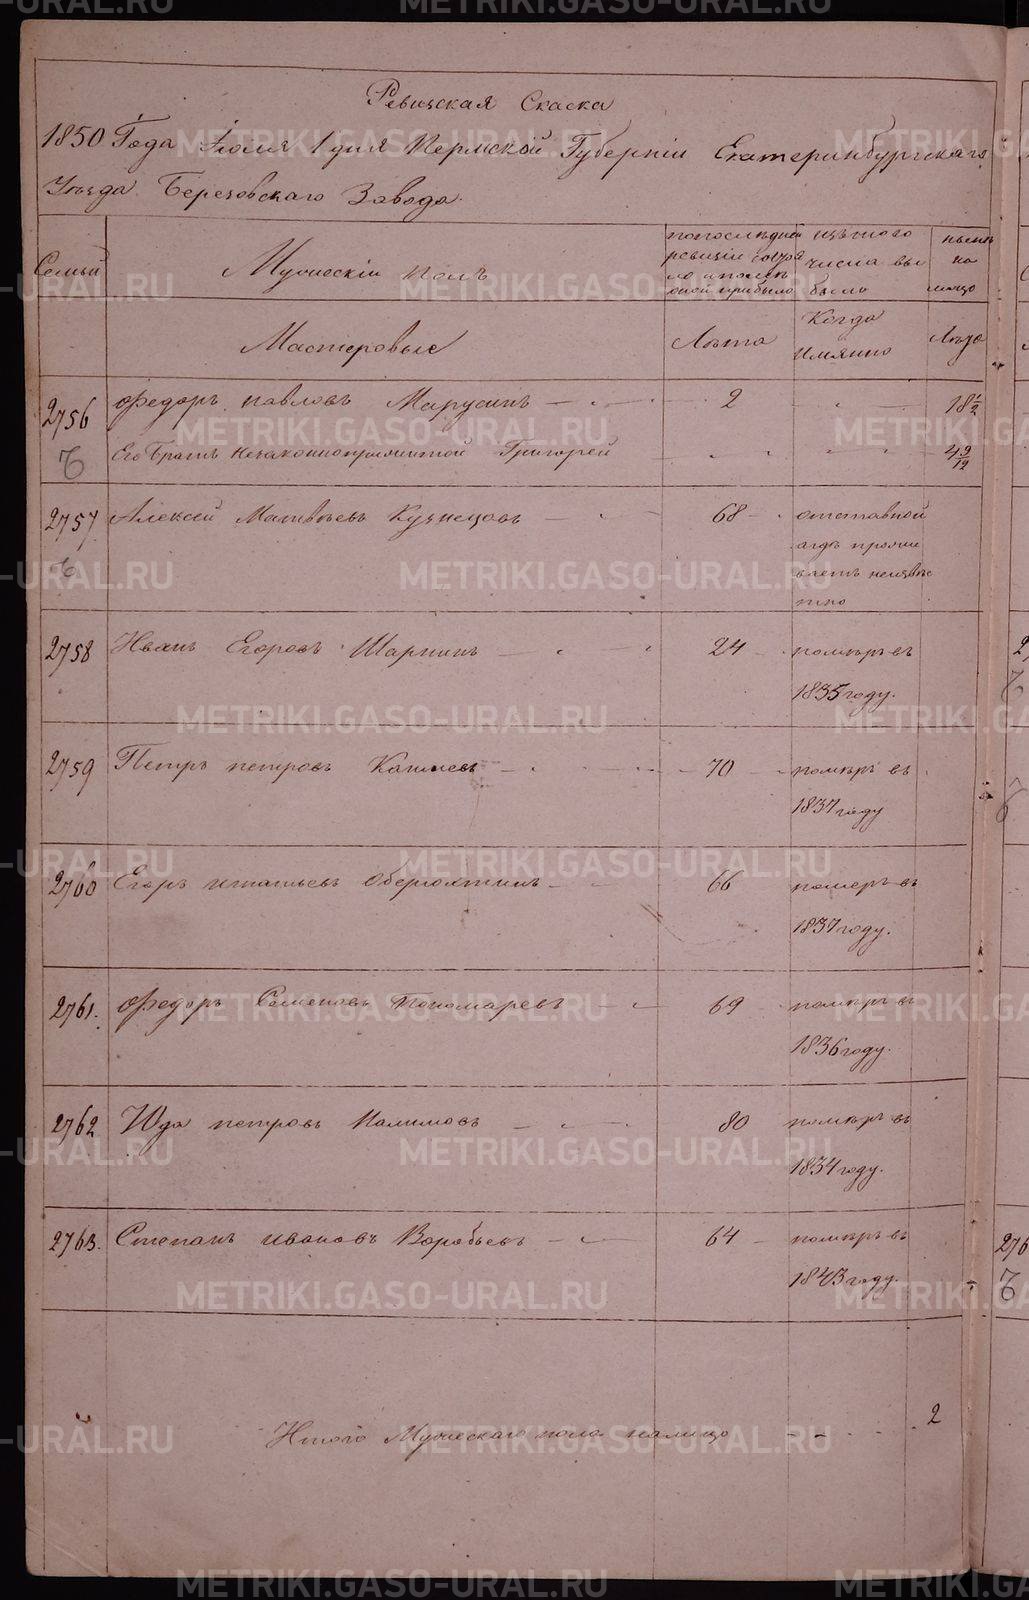 Ревизская Скаска
1850 Года Іюля 1 дня Пермской Губерніи Екатеринбургскаго
Уѣзда Березовскаго Завода.
Семьи
Мужескій полъ
попоследней
ревизіи состоя
ло ипослѣ
оной прибыло
изъ того
числа вы
было
нынѣ
на
лицо
Мастеровые
Лѣта
Когда
имянно
Лѣта
2756 Федоръ павловъ Марусинъ 2 18 1/2
Его Братъ незаконноприжитой Григорей 4 9/12
2757 Алексей Матвѣевъ Кузнецовъ 68 отставной
агдѣ прожи
ваетъ неизвѣс
тно
2758 Иванъ Егоровъ Шарпинъ 24 помѣръ въ
1835 году.
2759 Петръ петровъ 70 помѣръ въ
1837 году
2760 Егоръ 66 померъ въ
1837 году.
2761. Федоръ Семеновъ Пономаревъ 69 помѣръ въ
1836 году.
2762 Юда петровъ Налимовъ 80 помѣръ въ
1834 году.
2763. Степанъ ивановъ Воробьевъ 64 помѣръ въ
1843 году.
Итого Мужескаго пола налицо 2
METRIKI.GASO-URAL.RU